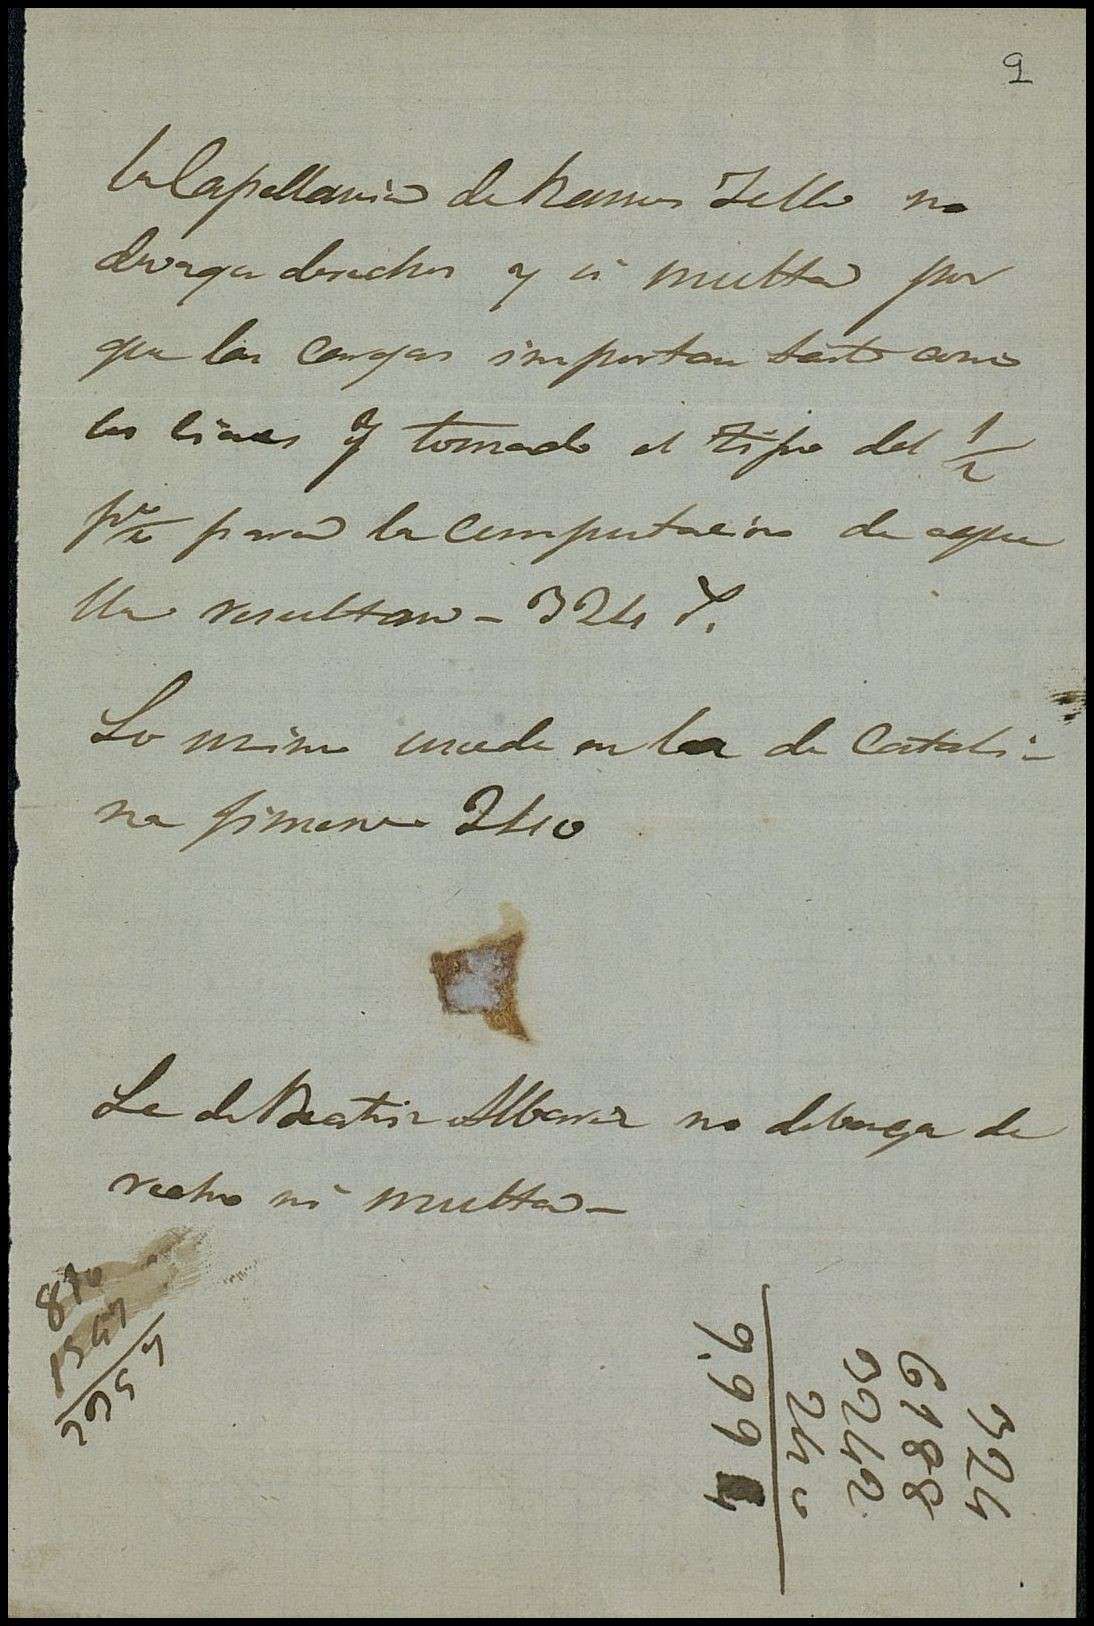 9
La Capellania de Ramos Tello no
devenga derechos y ni multa por
que las cargas importan tanto como
los lineas y tomado el tipo del 1/2
p% para la computacion de aque
lla resultan - 324 r.
Lo mismo sucede en la de Catali-
na Jimenez 240
La de Beatriz Albarez no debenga de
recho ni multa -
324
6188
3242
240
9.994